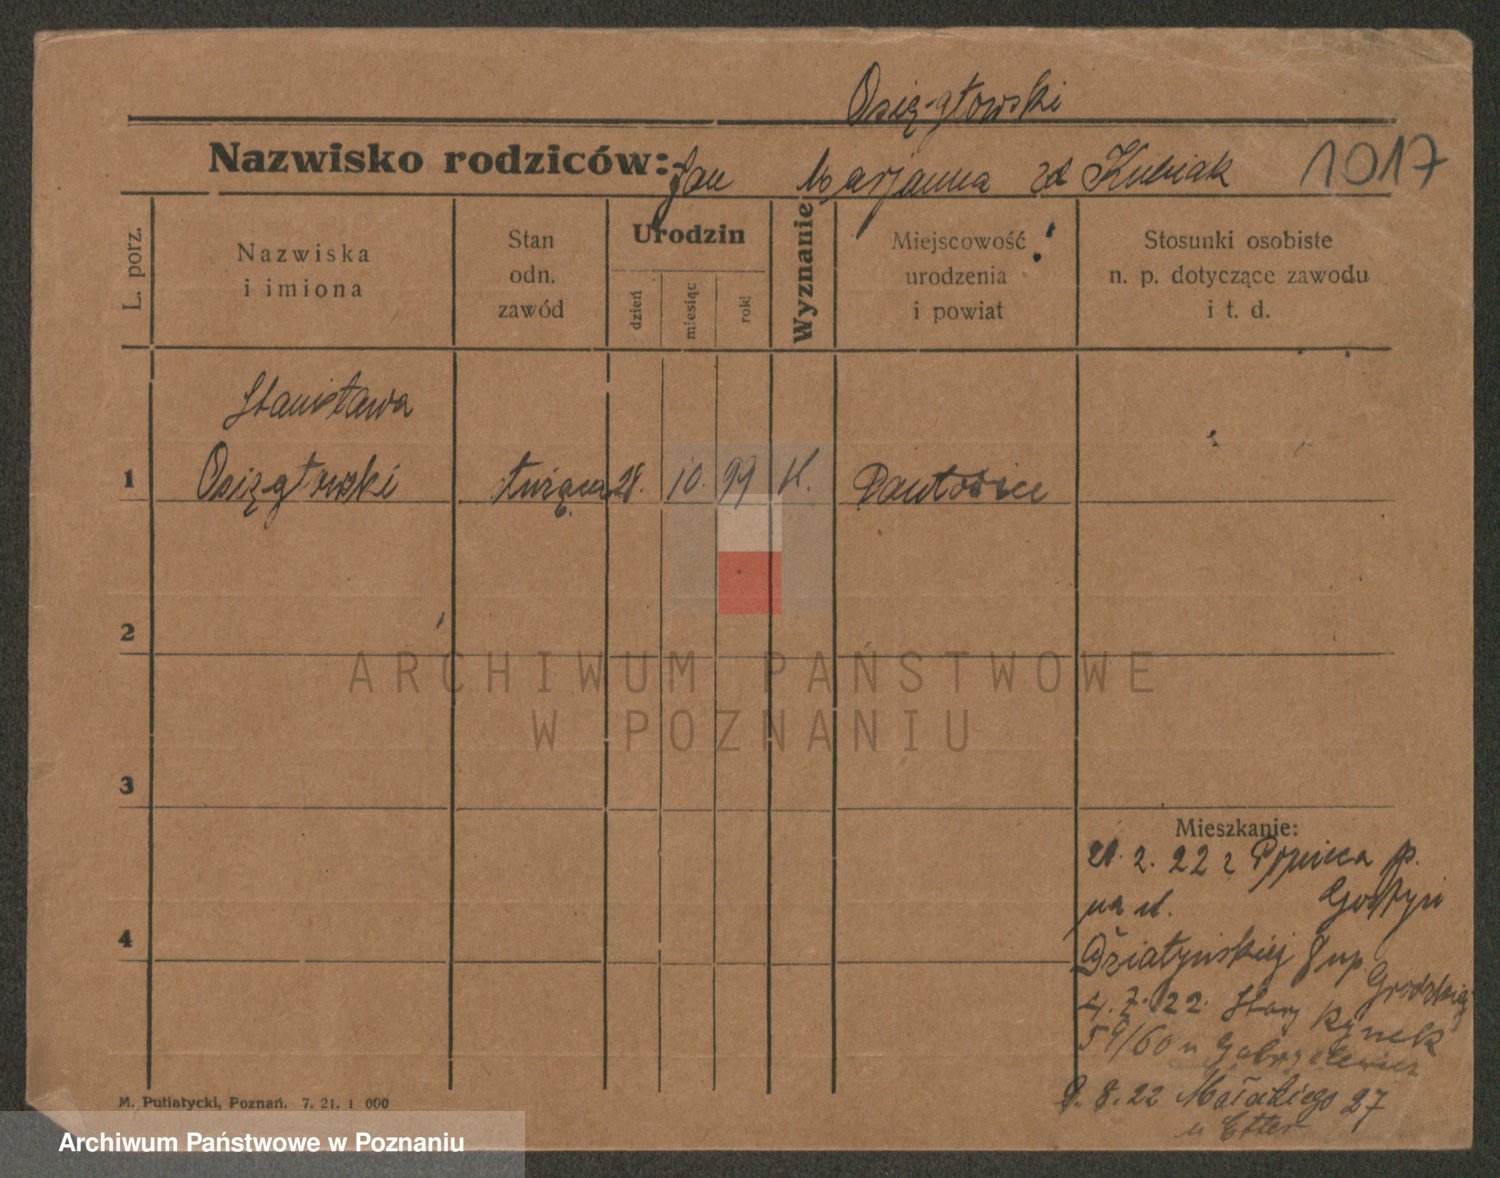 Osięgłowski
Nazwisko rodziców: Jan Marjanna zd Kubiak 1017
L. porz.
Nazwiska
i imiona
Stan
odn.
zawód
Urodzin
dzień
miesiąc
rok
Wyznanie
Miejscowość
urodzenia
i powiat
Stosunki osobiste
n. p. dotyczące zawodu
i t. d.
Stanisława
1 Osięgłowski służąca 28. 10. 99 k.
2
ARCHIWUM PAŃSTWOWE
W POZNANIU
3
Mieszkanie:
21. 2. 22 z p.
na ul. Gostyń
4
Działyńskiej 8 up Grodzkiej
4. 7. 22. Stary Rynek
59/60 u
9. 8. 22 Małeckiego 27
u
M. Putiatycki, Poznań. 7. 21. 1 000
Archiwum Państwowe w Poznaniu